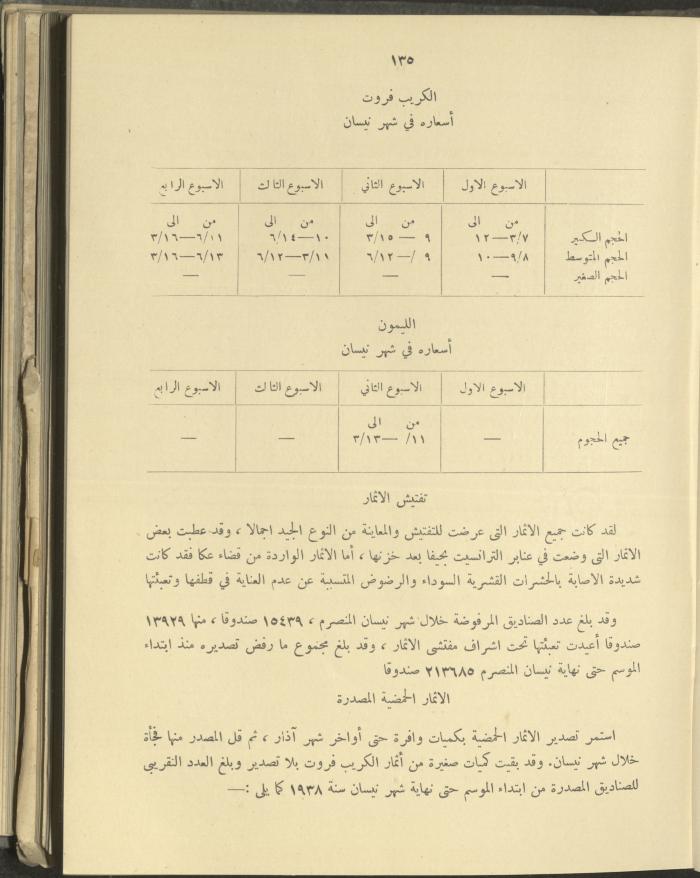 ١٣٥
الكريب فروت
أسعاره في شهر نيسان
الاسبوع الاول الاسبوع الثاني الاسبوع الثالث الاسبوع الرابع
من الى من الى من الى من الى
الحجم الكبير ٣/٧—١٢ ٩ — ٣/١٥ ١٠—٦/١٤ ٦/١١—٣/١٦
الحجم المتوسط ٩/٨—١٠ ٩ /— ٦/١٢ ٣/١١—٦/١٢ ٦/١٣—٣/١٦
الحجم الصغير — — — —
الليمون
أسعاره في شهر نيسان
الاسبوع الاول الاسبوع الثاني الاسبوع الثالث الاسبوع الرابع
من الى
جميع الحجوم — ١١/ —٣/١٣ — —
تفتيش الاثمار
لقد كانت جميع الاثمار التى عرضت للتفتيش والمعاينة من النوع الجيد اجمالا ، وقد عطبت بعض
الاثمار التى وضعت في عنابر الترانسيت بحيفا بعد خزنها ، أما الاثمار الواردة من قضاء عكا فقد كانت
شديدة الاصابة بالحشرات القشرية السوداء والرضوض المتسببة عن عدم العناية في قطفها وتعبئتها
وقد بلغ عدد الصناديق المرفوضة خلال شهر نيسان المنصرم ، ١٥٤٣٩ صندوقا ، منها ١٣٩٢٩
صندوقا أعيدت تعبئتها تحت اشراف مفتشى الاثمار ، وقد بلغ مجموع ما رفض تصديره منذ ابتداء
الموسم حتى نهاية نيسان المنصرم ٢١٣٦٨٥ صندوقا
الاثمار الحمضية المصدرة
استمر تصدير الاثمار الحمضية بكميات وافرة حتى أواخر شهر آذار ، ثم قل المصدر منها فجأة
خلال شهر نيسان. وقد بقيت كميات صغيرة من أثمار الكريب فروت بلا تصدير وبلغ العدد التقريبى
للصناديق المصدرة من ابتداء الموسم حتى نهاية شهر نيسان سنة ١٩٣٨ كما يلى :—